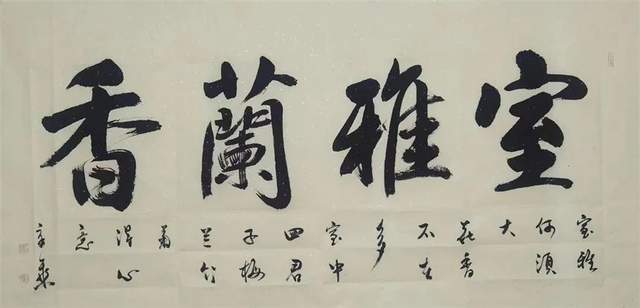 室雅蘭香
室雅
何須
大
花香
不在
多
室中
四君
子梅
兰竹
菊
得心
意